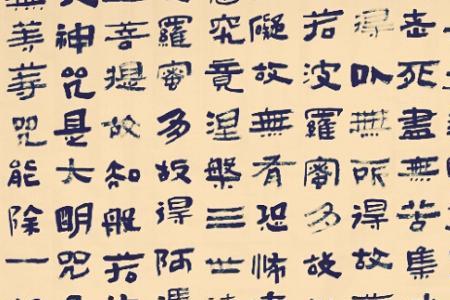 老死盡無苦集
得以無所得故
若波羅蜜多故
礙故無有恐怖
究竟涅槃三世
羅蜜多故得阿
菩提故知般若
神咒是大明咒
等等咒能除一